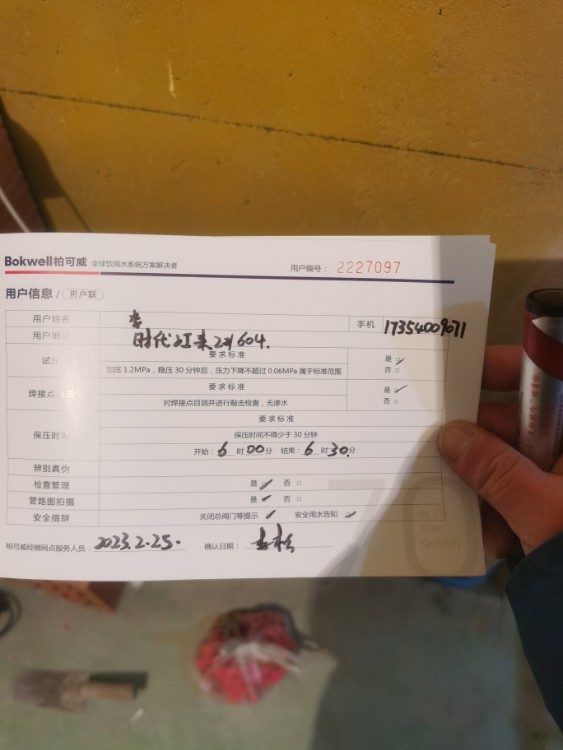 Bokwell柏可威 全球饮用水系统方案解决者 用户编号： 2227097
用户信息 / 用户联
用户姓名 李 手机 17354009071
用户地 时代 604.
试压 要求标准 是 ✓
加压 1.2MPa，稳压 30 分钟后，压力下降不超过 0.06MPa 属于标准范围 否 □
焊接点 要求标准 是 ✓
对焊接点目测并进行敲击检查，无渗水 否 □
保压时 要求标准
保压时间不得少于 30 分钟
开始：6 时 00 分 结束：6 时 30 分
辨别真伪
检查管理 是 ✓ 否 □
管路图拍摄 是 ✓ 否 □
安全措辞 关闭总阀门等提示 ✓ 安全用水告知 ✓
柏可威经销网点服务人员： 2023.2.25. 确认日期：